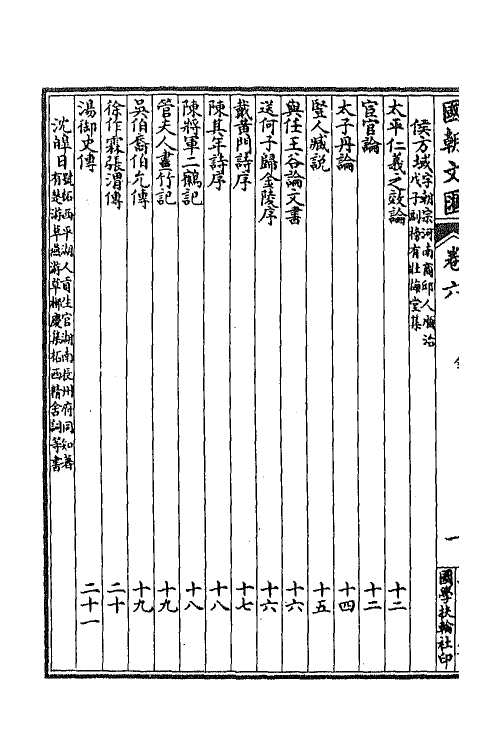 國朝文匯 卷六 一 國學扶輪社印
侯方域 字朝宗河南商邱人順治戊子副榜有壯悔堂集
太平仁義之效論 十二
宦官論 十二
太子丹論 十四
豎人臧説 十五
與任王谷論文書 十六
送何子歸金陵序 十六
戴黄門詩序 十七
陳其年詩序 十八
陳將軍二鶴記 十八
管夫人畫竹記 十九
吳伯裔伯允傳 十九
徐作霖張渭傳 二十
湯御史傳 二十一
沈皡日 號柘西平湖人貢生官湖南長州府同知著有楚游草燕游草柳慶集柘西精舍詞等書